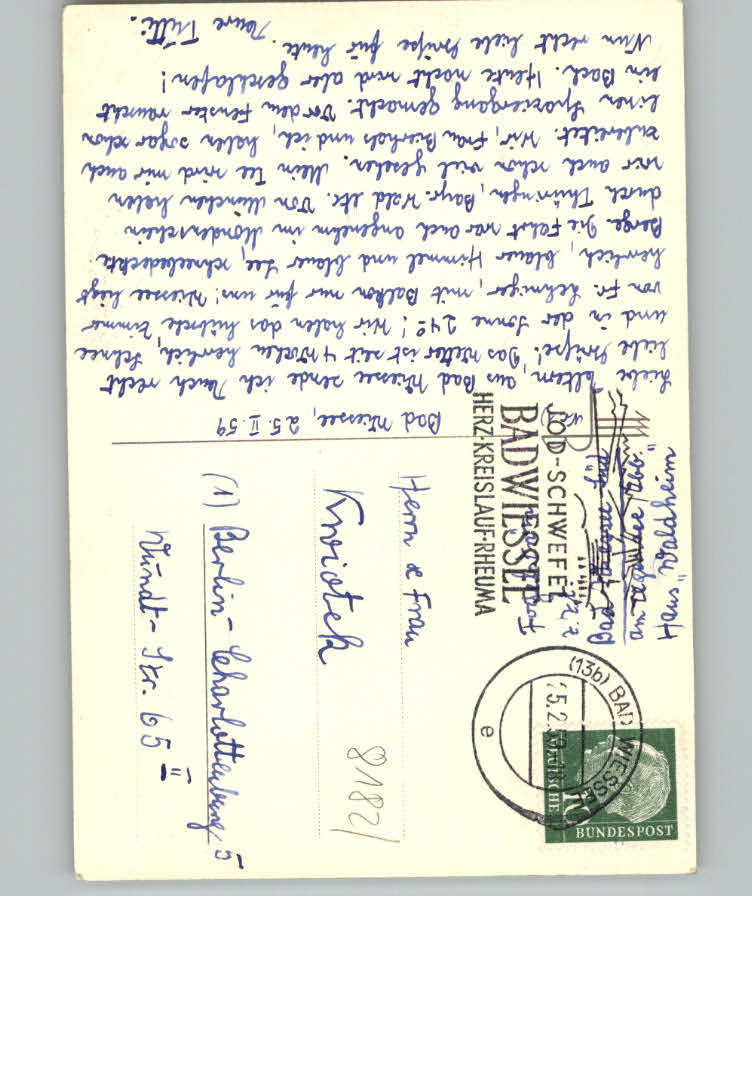 Haus "Waldheim
Bad Wiessee Obb."
am Tegernsee
z. Zt.
JOD-SCHWEFEL
BAD WIESSEE
HERZ·KREISLAUF·RHEUMA
(13b) BAD WIESSEE
e
BUNDESPOST
Herrn & Frau
Kwiotek
8182/
(1) Berlin-Charlottenburg 5
Wundt-Str. 65 II
Bad Wiessee, 25.II.59
Liebe Eltern, aus Bad Wiessee sende ich Euch recht
liebe Grüße! Das Wetter ist seit 4 Wochen herrlich, Schnee
und in der Sonne 24°! Wir haben das hübsche Zimmer
von Fr. mit Balkon nur für uns! Wiessee liegt
herrlich, blauer Himmel und blauer See, schneebedeckte
Berge. Die Fahrt war auch angenehm im Mondenschein
durch Thüringen, Bayr. Wald etc. Von München haben
wir auch schon viel gesehen. Mein Tee wird mir auch
zubereitet. Wir, Frau und ich, haben sogar schon
einen Spaziergang gemacht. Vor dem Fenster rauscht
ein Bach. Heute nacht wird aber geschlafen!
Nun recht liebe Grüße für heute.